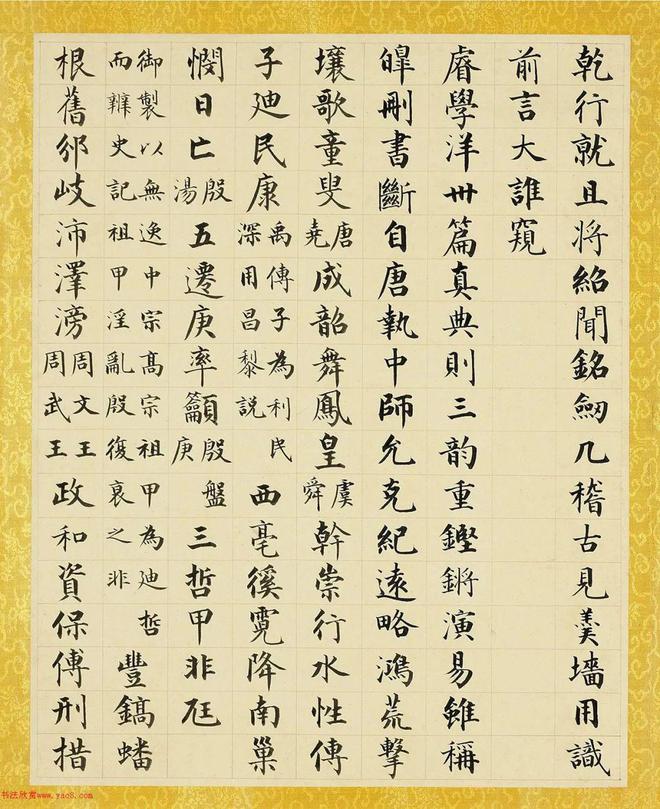 乾行就且将紹聞銘劒几稽古見羹墻用識
前言大誰窺
睿學洋卅篇真典則三韵重鏗鏘演易雖稱
皥刪書斷自唐執中師允克紀遠略鴻荒擊
壤歌童叟唐堯成韶舞鳳皇虞舜幹崇行水性傳
子廸民康禹傳子為利民深用昌黎説西亳徯霓降南巢
憫日亡殷湯五遷庚率籲殷盤庚三哲甲非尫
御製以無逸中宗髙宗祖甲為廸哲而辨史記祖甲淫亂殷復衰之非豐鎬蟠
根舊邠岐沛澤滂周文王周武王政和資保傅刑措
书法欣赏www.yac8.com